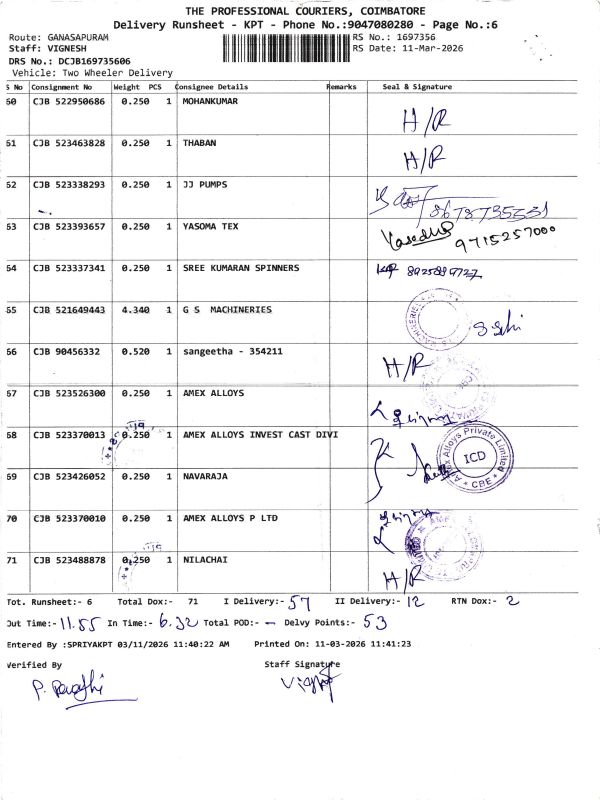 THE PROFESSIONAL COURIERS, COIMBATORE
Delivery Runsheet - KPT - Phone No.:9047080280 - Page No.:6
Route: GANASAPURAM
RS No.: 1697356
Staff: VIGNESH
RS Date: 11-Mar-2026
DRS No.: DCJB169735606
Vehicle: Two Wheeler Delivery
S No Consignment No Weight PCS Consignee Details Remarks Seal & Signature
60 CJB 522950686 0.250 1 MOHANKUMAR H/R
61 CJB 523463828 0.250 1 THABAN H/R
62 CJB 523338293 0.250 1 JJ PUMPS
63 CJB 523393657 0.250 1 YASOMA TEX 9715257000
64 CJB 523337341 0.250 1 SREE KUMARAN SPINNERS
65 CJB 521649443 4.340 1 G S MACHINERIES
66 CJB 90456332 0.520 1 sangeetha - 354211 H/R
67 CJB 523526300 0.250 1 AMEX ALLOYS
68 CJB 523370013 0.250 1 AMEX ALLOYS INVEST CAST DIVI
Amex Alloys Private Limited
ICD
* CBE *
69 CJB 523426052 0.250 1 NAVARAJA
70 CJB 523370010 0.250 1 AMEX ALLOYS P LTD
71 CJB 523488878 0.250 1 NILACHAI H/R
Tot. Runsheet:- 6 Total Dox:- 71 I Delivery:- 57 II Delivery:- 12 RTN Dox:- 2
Out Time:- 11.55 In Time:- 6.32 Total POD:- — Delvy Points:- 53
Entered By :SPRIYAKPT 03/11/2026 11:40:22 AM Printed On: 11-03-2026 11:41:23
Verified By Staff Signature